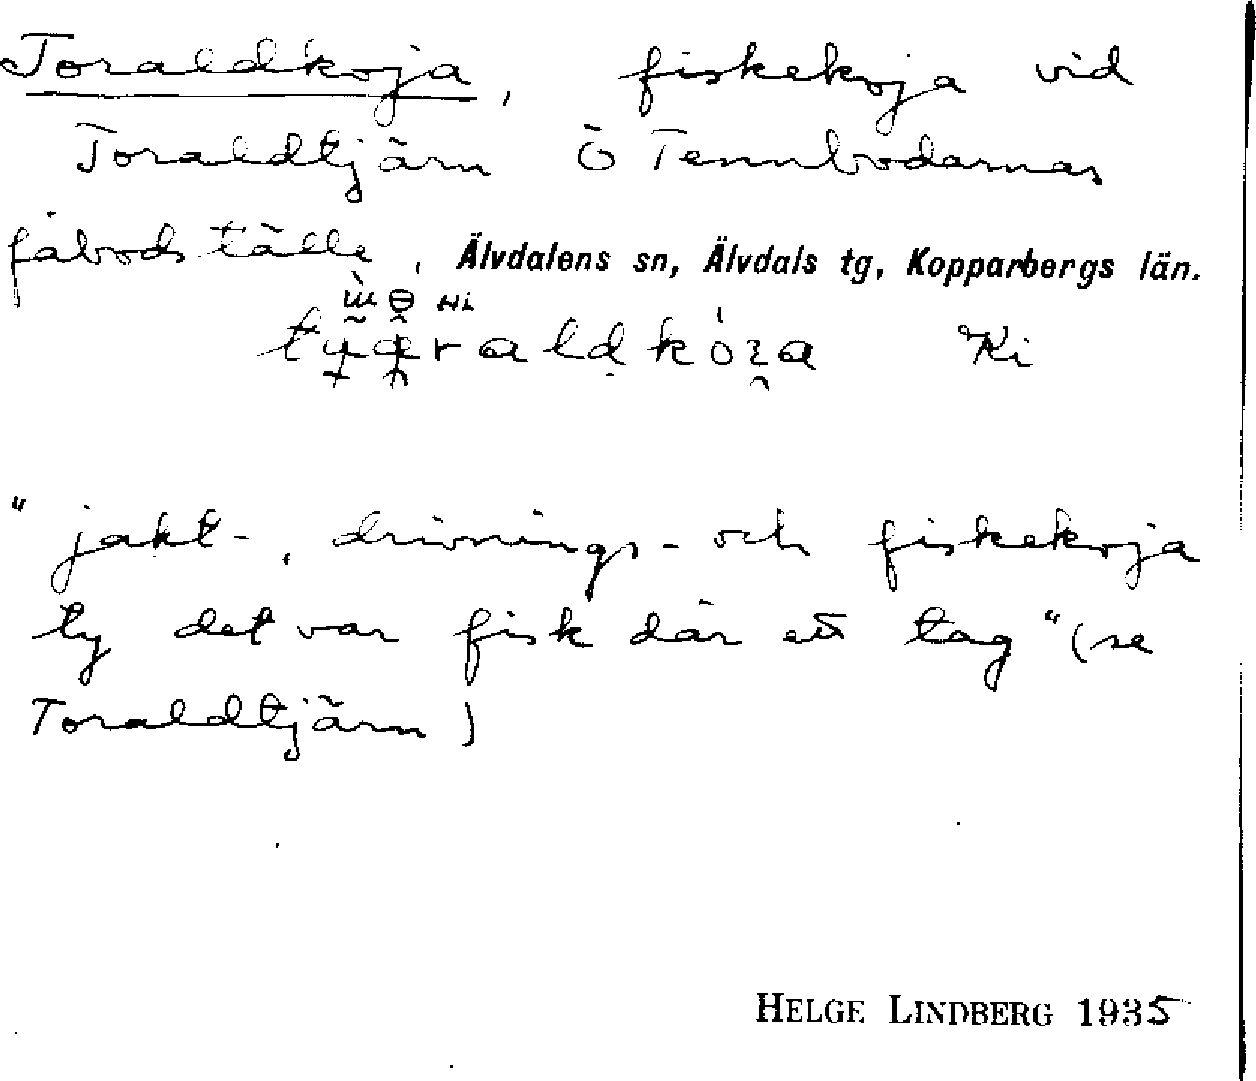 Toraldkoja, fiskekoja vid
Toraldtjärn Ö Tennbodarnas
fäbodställe, Älvdalens sn, Älvdals tg, Kopparbergs län.
Ki
"jakt-, drivnings- och fiskekoja
ty det var fisk där ett tag" (se
Toraldtjärn)
HELGE LINDBERG 1935